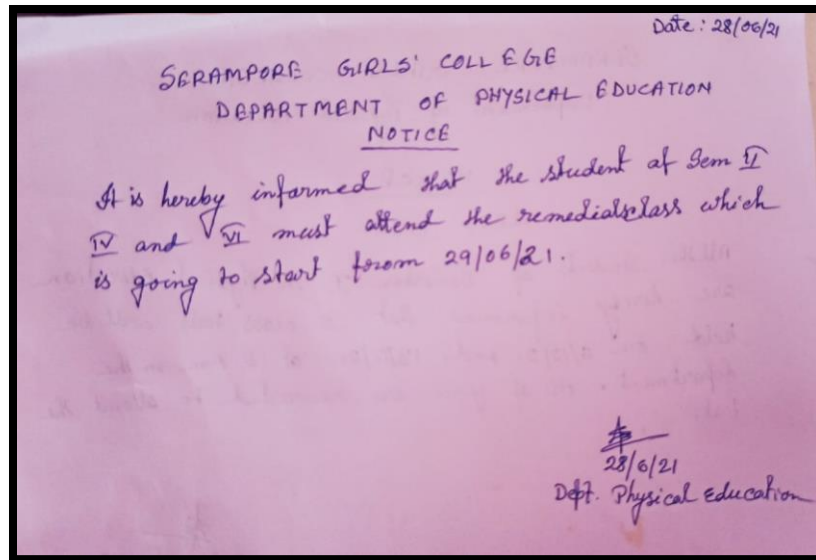 Date: 28/06/21
SERAMPORE GIRLS' COLLEGE
DEPARTMENT OF PHYSICAL EDUCATION
NOTICE
It is hereby informed that the student of Sem II
IV and VI must attend the remedialsclass which
is going to start forom 29/06/21.
28/6/21
Dept. Physical Education